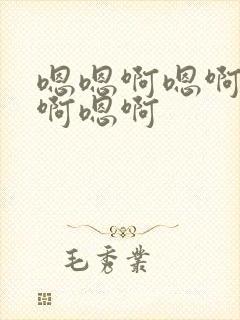 嗯嗯啊嗯啊
啊嗯啊
毛秀業